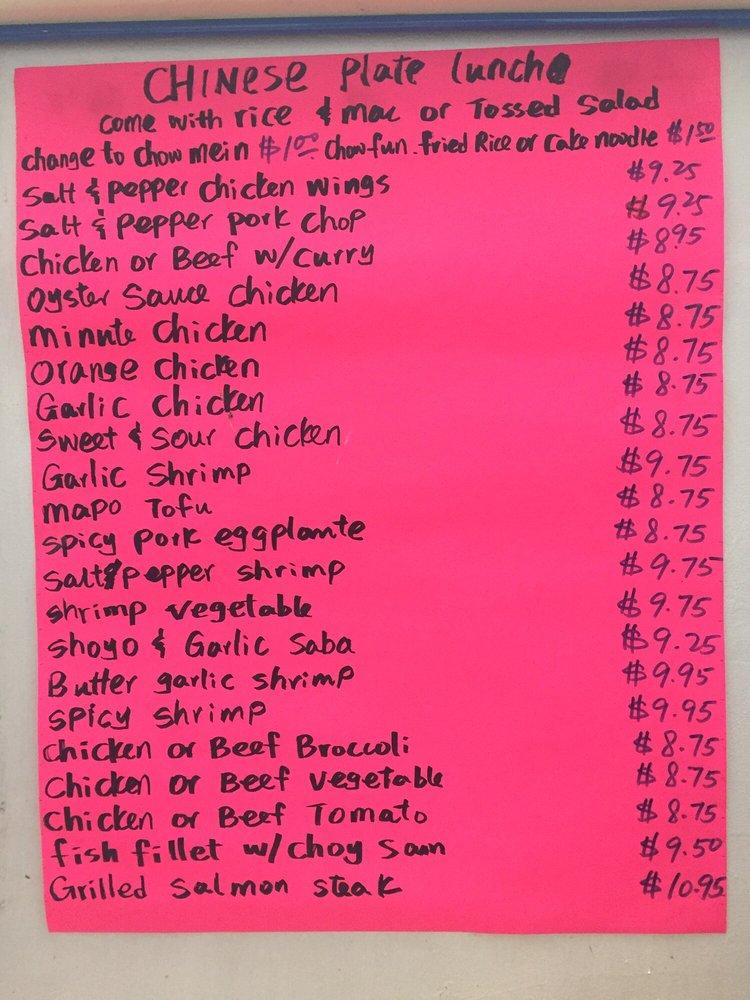 CHINESE Plate lunch
come with rice & mac or Tossed Salad
change to chow mein $1.00 chowfun. fried Rice or Cake noodle $1.50
Salt & pepper chicken wings $9.25
Salt & pepper pork chop $9.25
Chicken or Beef w/curry $8.95
Oyster Sauce chicken $8.75
minute chicken $8.75
Orange chicken $8.75
Garlic chicken $8.75
Sweet & Sour chicken $8.75
Garlic Shrimp $9.75
mapo Tofu $8.75
spicy pork eggplante $8.75
Salt&pepper shrimp $9.75
shrimp vegetable $9.75
shoyo & Garlic Saba $9.25
Butter garlic shrimp $9.95
spicy shrimp $9.95
Chicken or Beef Broccoli $8.75
Chicken or Beef vegetable $8.75
Chicken or Beef Tomato $8.75
fish fillet w/choy sam $9.50
Grilled salmon steak $10.95